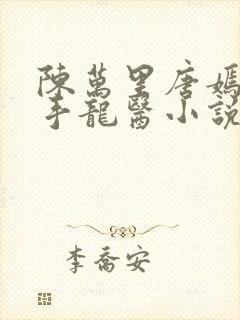 陳萬里唐嫣
手龍醫小說
李喬安